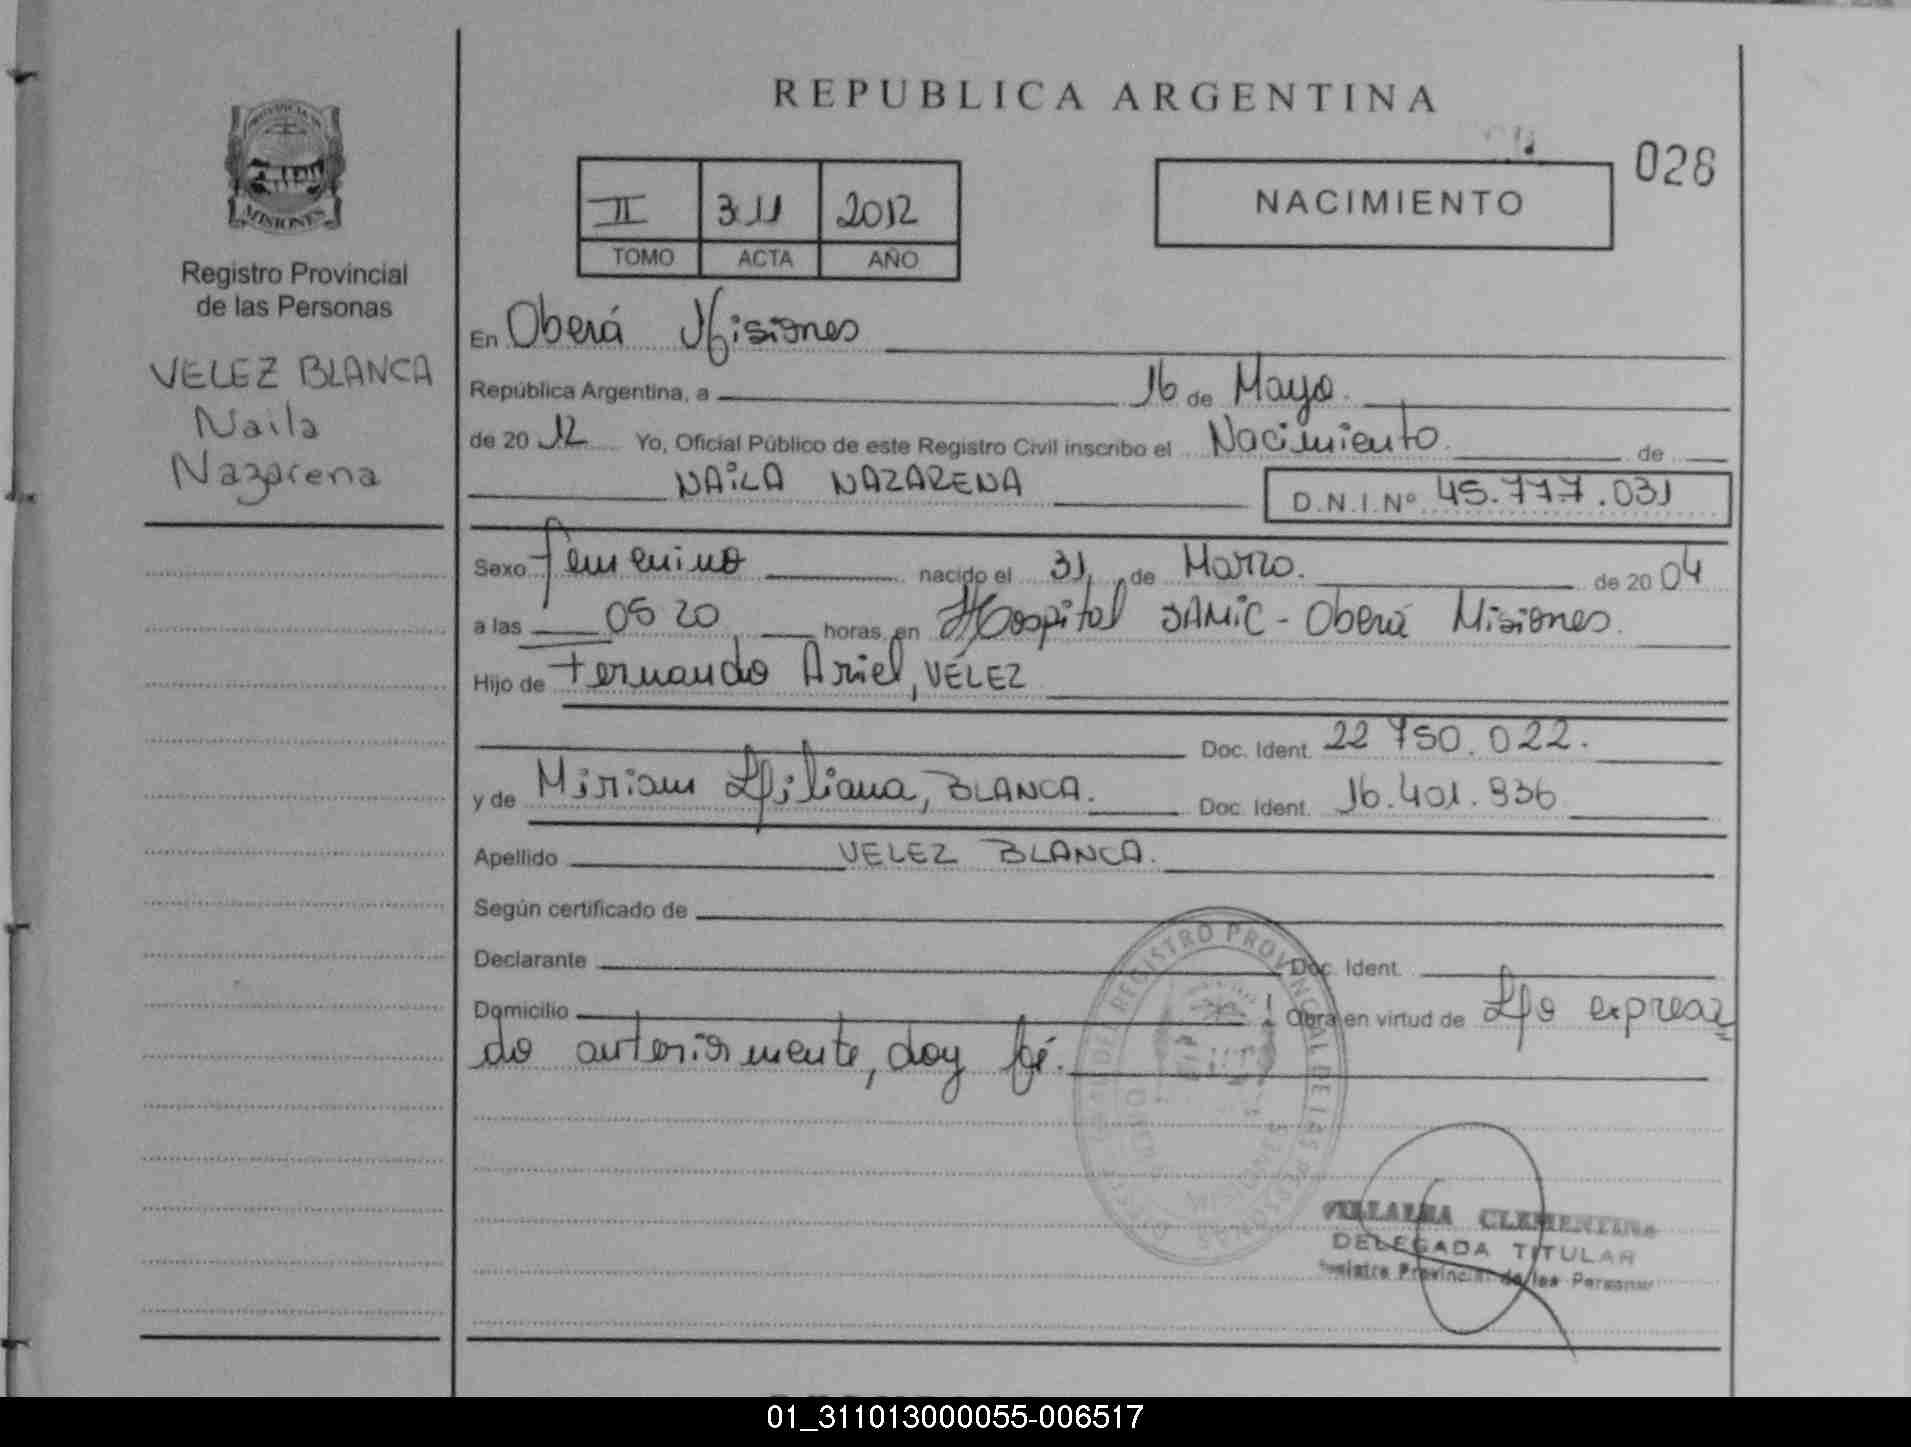 REPUBLICA ARGENTINA
PROVINCIA DE
MISIONES
Registro Provincial
de las Personas
VELEZ BLANCA
Naila
Nazarena
II 311 2012
TOMO ACTA AÑO
NACIMIENTO
028
En Oberá Misiones
República Argentina, a 16 de Mayo.
de 20 12 Yo, Oficial Público de este Registro Civil inscribo el Nacimiento. de
NAILA NAZARENA D.N.I.Nº 45.777.031
Sexo femenino nacido el 31 de Marzo. de 20 04
a las 05 20 horas, en Hospital SAMIC - Oberá Misiones.
Hijo de Fernando Ariel, VÉLEZ
Doc. Ident. 22 750.022.
y de Miriam Liliana, BLANCA. Doc. Ident. 16.401.936
Apellido VELEZ BLANCA.
Según certificado de
Declarante Doc. Ident.
Domicilio Obra en virtud de Lo expresa
do anteriormente, doy fé.
REGISTRO PROVINCIAL DE LAS PERSONAS
VILLALBA CLEMENTINA
DELEGADA TITULAR
Registro Provincial de las Personas
01_311013000055-006517